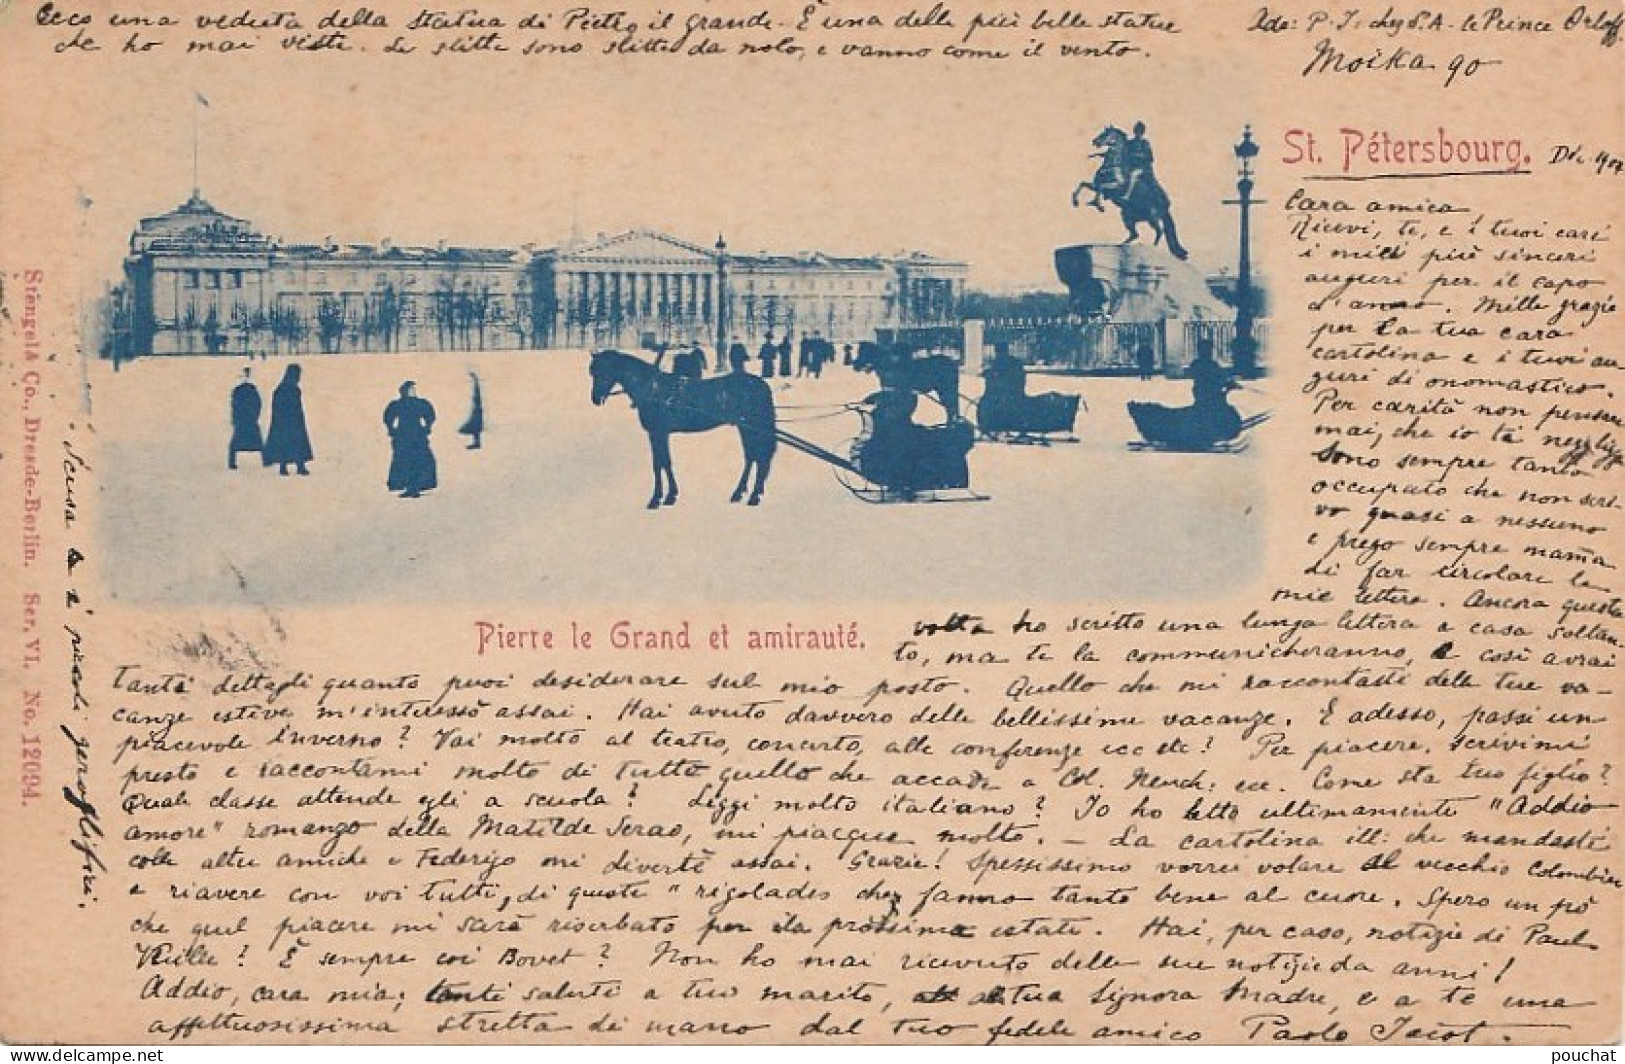 Ecco una veduta della statua di Pietro il grande. È una delle più belle statue
che ho mai viste. Le slitte sono slitte da nolo, e vanno come il vento.
P. I. chez S. A. le Prince Orloff
Moika 90
St. Pétersbourg.
Cara amica
Ricevi, te, e i tuoi cari
i miei più sinceri
auguri per il capo
d'anno. Mille grazie
per la tua cara
cartolina e i tuoi au-
guri di onomastico.
Per carità non pensare
mai, che io te
Sono sempre tanto
occupato che non scri-
vo quasi a nessuno
e prego sempre mamma
di far circolare le
mie lettere. Ancora questa
volta ho scritto una lunga lettera a casa soltan-
to, ma te la communicheranno, e così avrai
Pierre le Grand et amirauté.
tanti dettagli quanto puoi desiderare sul mio posto. Quello che mi raccontasti delle tue va-
canze estive m'interessò assai. Hai avuto davvero delle bellissime vacanze. E adesso, passi un
piacevole inverno? Vai molto al teatro, concerto, alle conferenze ecc etc? Per piacere, scrivimi
presto e raccontami molto di tutto quello che accade a Col. ecc. Come sta tuo figlio?
Quale classe attende egli a scuola? Leggi molto italiano? Io ho letto ultimamente "Addio
amore" romanzo della Matilde Serao, mi piacque molto. — La cartolina ill: che mandasti
colle altre amiche e Federigo mi divertì assai. Grazie! Spessissimo vorrei volare al vecchio Colombier
e riavere con voi tutti, di queste "rigolades che fanno tanto bene al cuore. Spero un pò
che quel piacere mi sarà riserbato per la prossima estate. Hai, per caso, notizie di Paul
? È sempre coi Bovet? Non ho mai ricevuto delle sue notizie da anni!
Addio, cara mia; tanti saluti a tuo marito, alla tua Signora Madre, e a te una
affettuosissima stretta di mano dal tuo fedele amico Paolo
Scusa i piccoli geroglifici.
Stengel & Co., Dresde-Berlin. Ser. VI. No. 12094.
pouchat